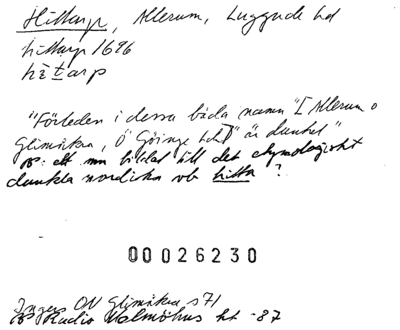 Hittarp, Allerum, Luggude hd
hittarp 1696
hìtarp
"Förleden i dessa båda namn "[Allerum o
Glimåkra, Ö Göinge hd]" är dunkel"
B: ett mn bildat till det etymologiskt
dunkla nordiska vb hitta?
00026230
Ingers ON Glimåkra s 71
B Radio Malmöhus ht -87